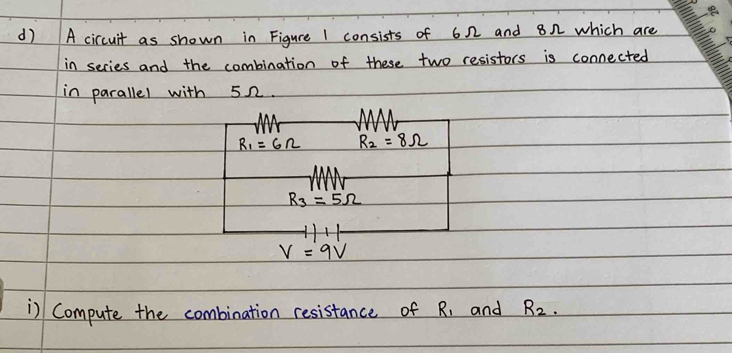 d) A circuit as shown in Figure 1 consists of 6Ω and 8Ω which are
in series and the combination of these two resistors is connected
in parallel with 5Ω.
R1 = 6Ω R2 = 8Ω
R3 = 5Ω
V = 9V
i) Compute the combination resistance of R1 and R2.